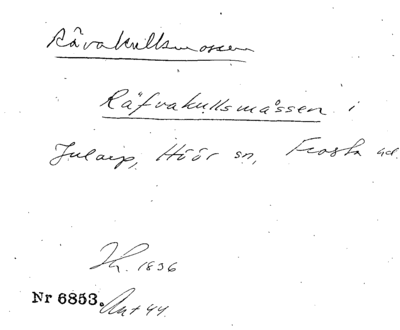 Rävakullsmossen
Räfvakullsmåssen i
Jularp, Höör sn, Frosta hd
1836
Nr 6853. Akt 44.